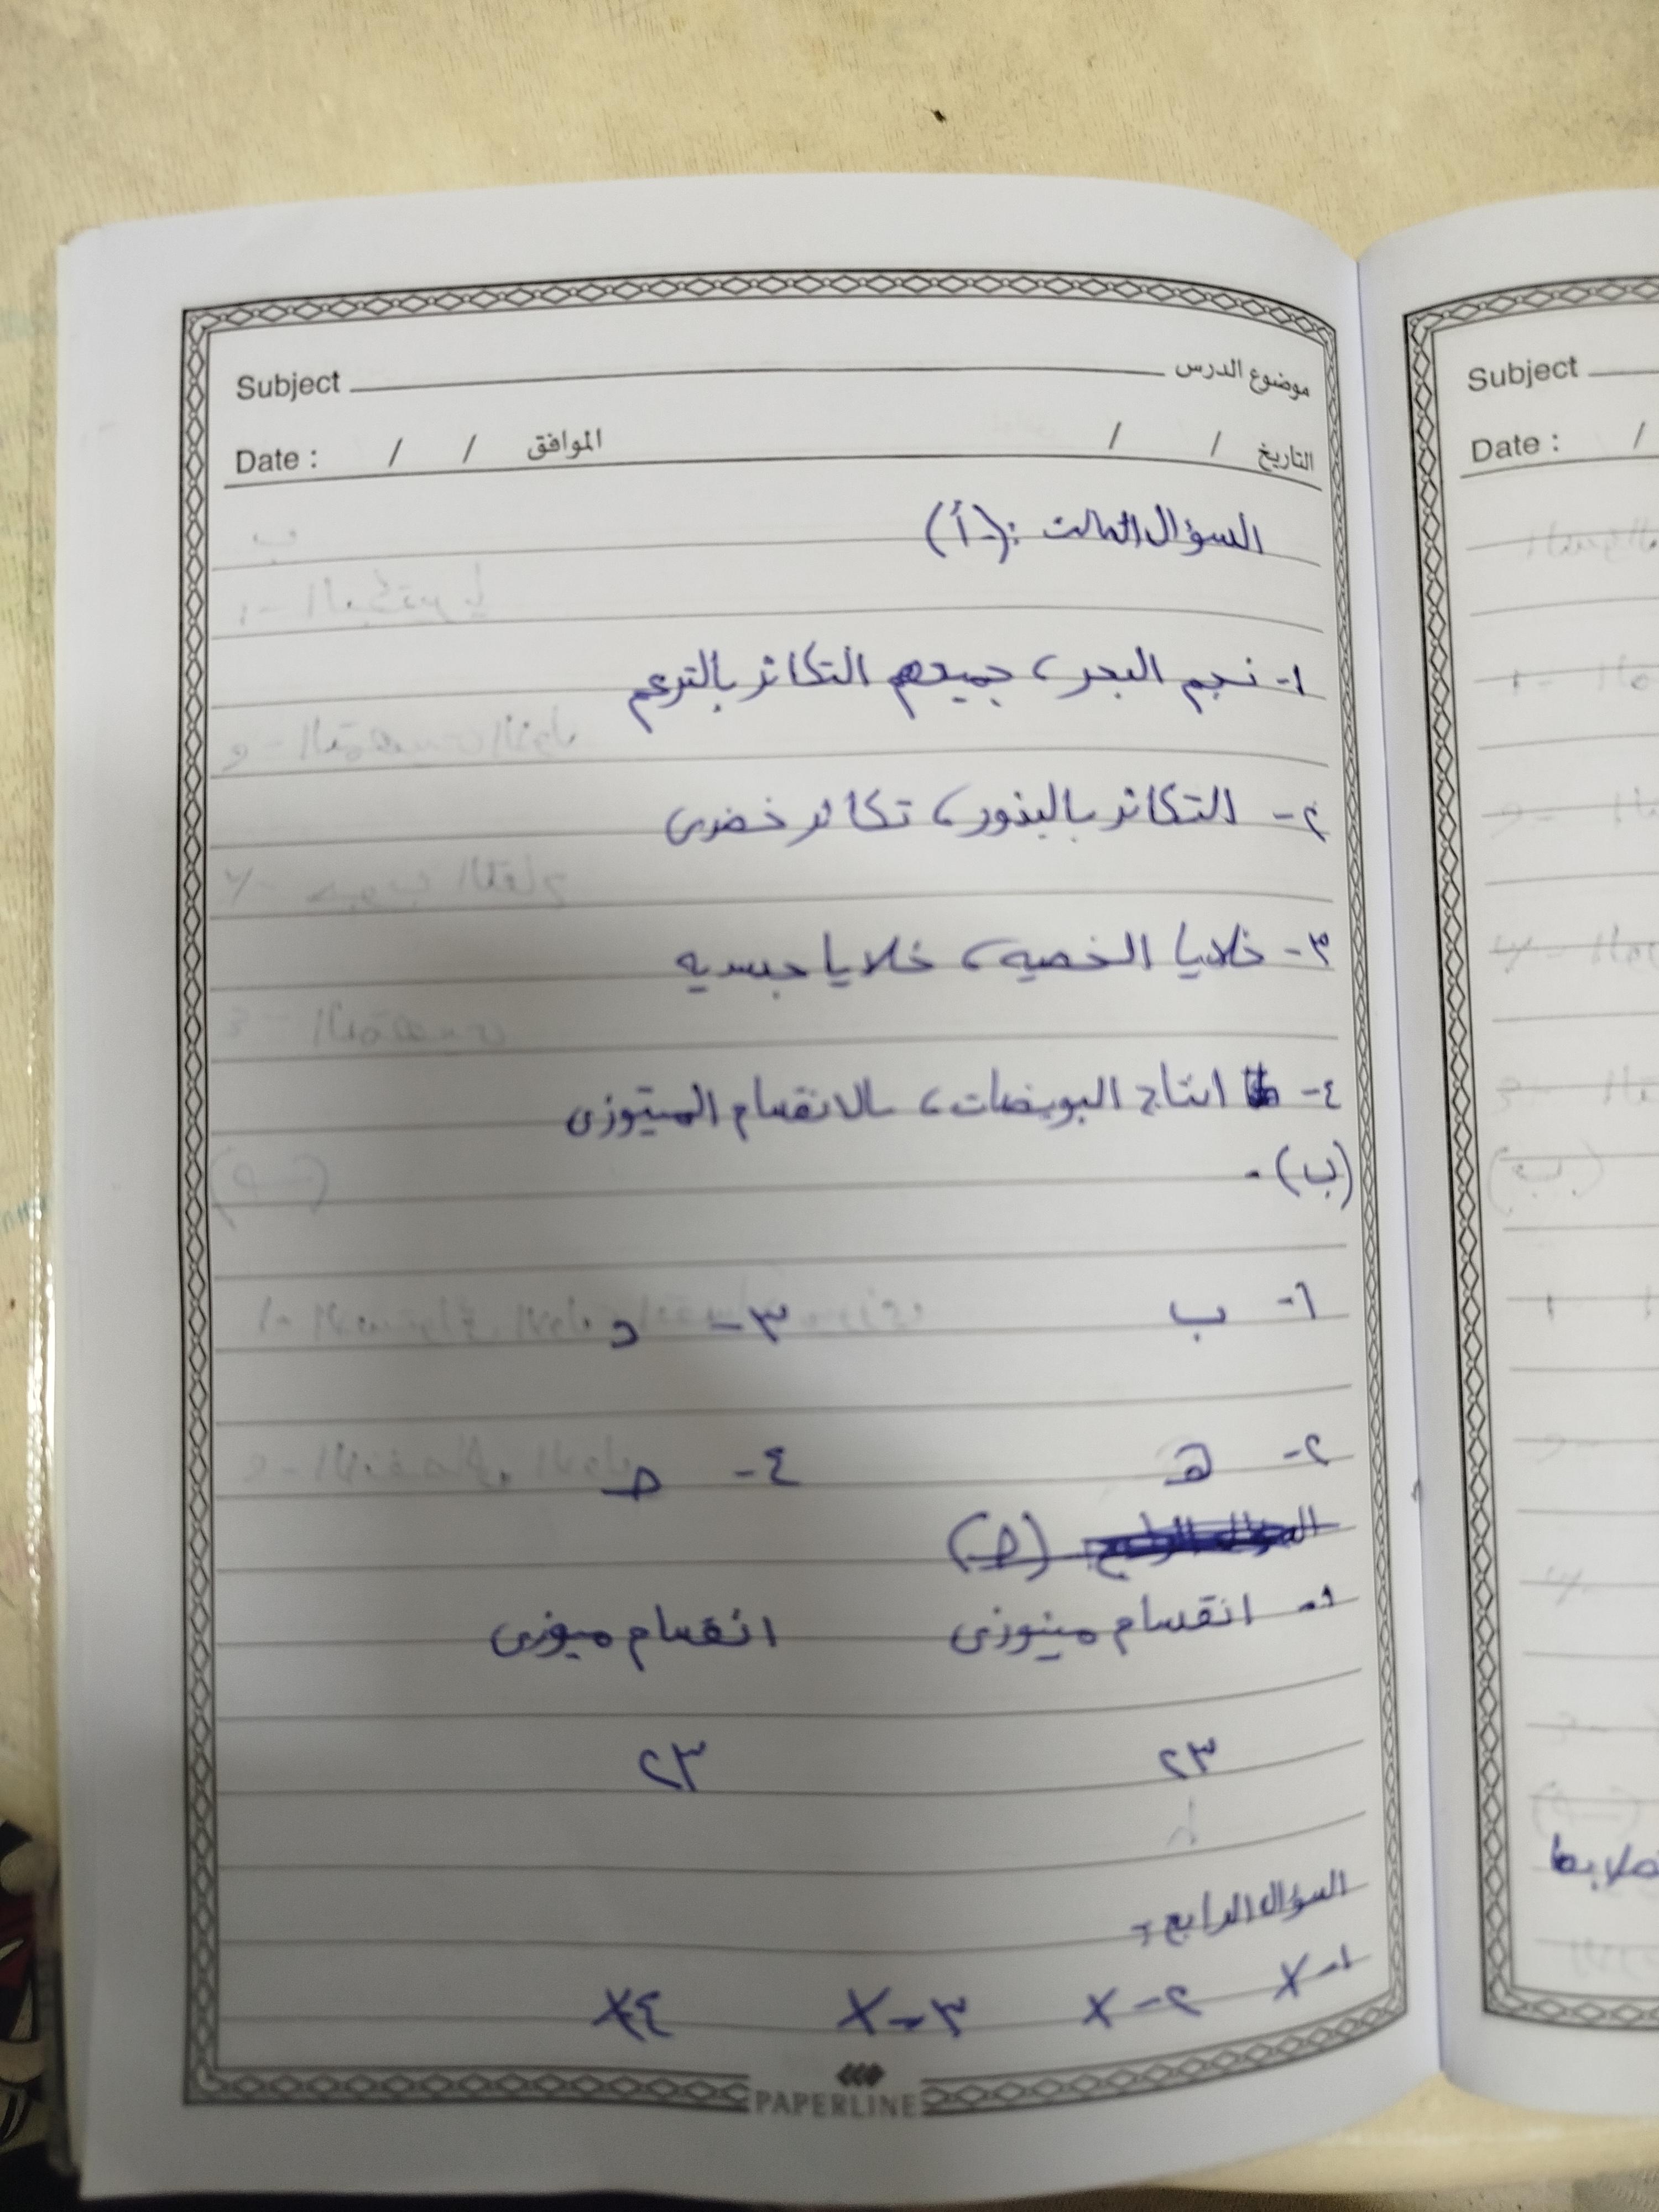 Subject موضوع الدرس
Date : / / الموافق / / التاريخ
السؤال الثالث :(أ)
١- نجم البحر، جميعهم التكاثر بالتبرعم
٢- التكاثر بالبذور، تكاثر خضرى
٣- خلايا الخصيه، خلايا جسديه
٤- انتاج البويضات، بالانقسام الميتوزى
(ب) -
١- ب ٣- د
٢- هـ ٤- جـ
(جـ)
١- انقسام ميتوزى انقسام ميوزى
٢٣ ٢٣
السؤال الرابع :
١- X ٢- X ٣- X ٤- X
PAPERLINE
Subject
Date : /